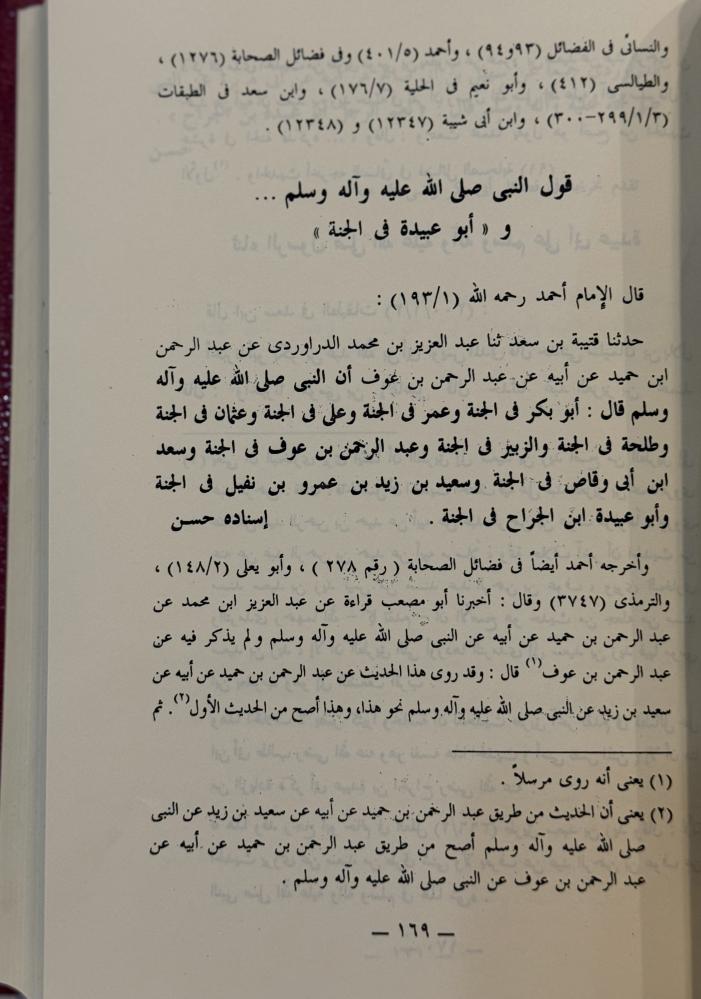 والنسائى فى الفضائل (٩٣و٩٤) ، وأحمد (٤٠١/٥) وفى فضائل الصحابة (١٢٧٦) ،
والطيالسى (٤١٢) ، وأبو نعيم فى الحلية (١٧٦/٧) ، وابن سعد فى الطبقات
(٢٩٩/١/٣-٣٠٠) ، وابن أبى شيبة (١٢٣٤٧) و (١٢٣٤٨) .
قول النبى صلى الله عليه وآله وسلم ...
و « أبو عبيدة فى الجنة »
قال الإمام أحمد رحمه الله (١٩٣/١) :
حدثنا قتيبة بن سعد ثنا عبد العزيز بن محمد الدراوردى عن عبد الرحمن
ابن حميد عن أبيه عن عبد الرحمن بن عوف أن النبى صلى الله عليه وآله
وسلم قال : أبو بكر فى الجنة وعمر فى الجنة وعلى فى الجنة وعثمان فى الجنة
وطلحة فى الجنة والزبير فى الجنة وعبد الرحمن بن عوف فى الجنة وسعد
ابن أبى وقاص فى الجنة وسعيد بن زيد بن عمرو بن نفيل فى الجنة
وأبو عبيدة ابن الجراح فى الجنة . إسناده حسن
وأخرجه أحمد أيضاً فى فضائل الصحابة ( رقم ٢٧٨ ) ، وأبو يعلى (١٤٨/٢) ،
والترمذى (٣٧٤٧) وقال : أخبرنا أبو مصعب قراءة عن عبد العزيز ابن محمد عن
عبد الرحمن بن حميد عن أبيه عن النبى صلى الله عليه وآله وسلم ولم يذكر فيه عن
عبد الرحمن بن عوف(١) قال : وقد روى هذا الحديث عن عبد الرحمن بن حميد عن أبيه عن
سعيد بن زيد عن النبى صلى الله عليه وآله وسلم نحو هذا، وهذا أصح من الحديث الأول(٢). ثم
(١) يعنى أنه روى مرسلاً .
(٢) يعنى أن الحديث من طريق عبد الرحمن بن حميد عن أبيه عن سعيد بن زيد عن النبى
صلى الله عليه وآله وسلم أصح من طريق عبد الرحمن بن حميد عن أبيه عن
عبد الرحمن بن عوف عن النبى صلى الله عليه وآله وسلم .
— ١٦٩ —